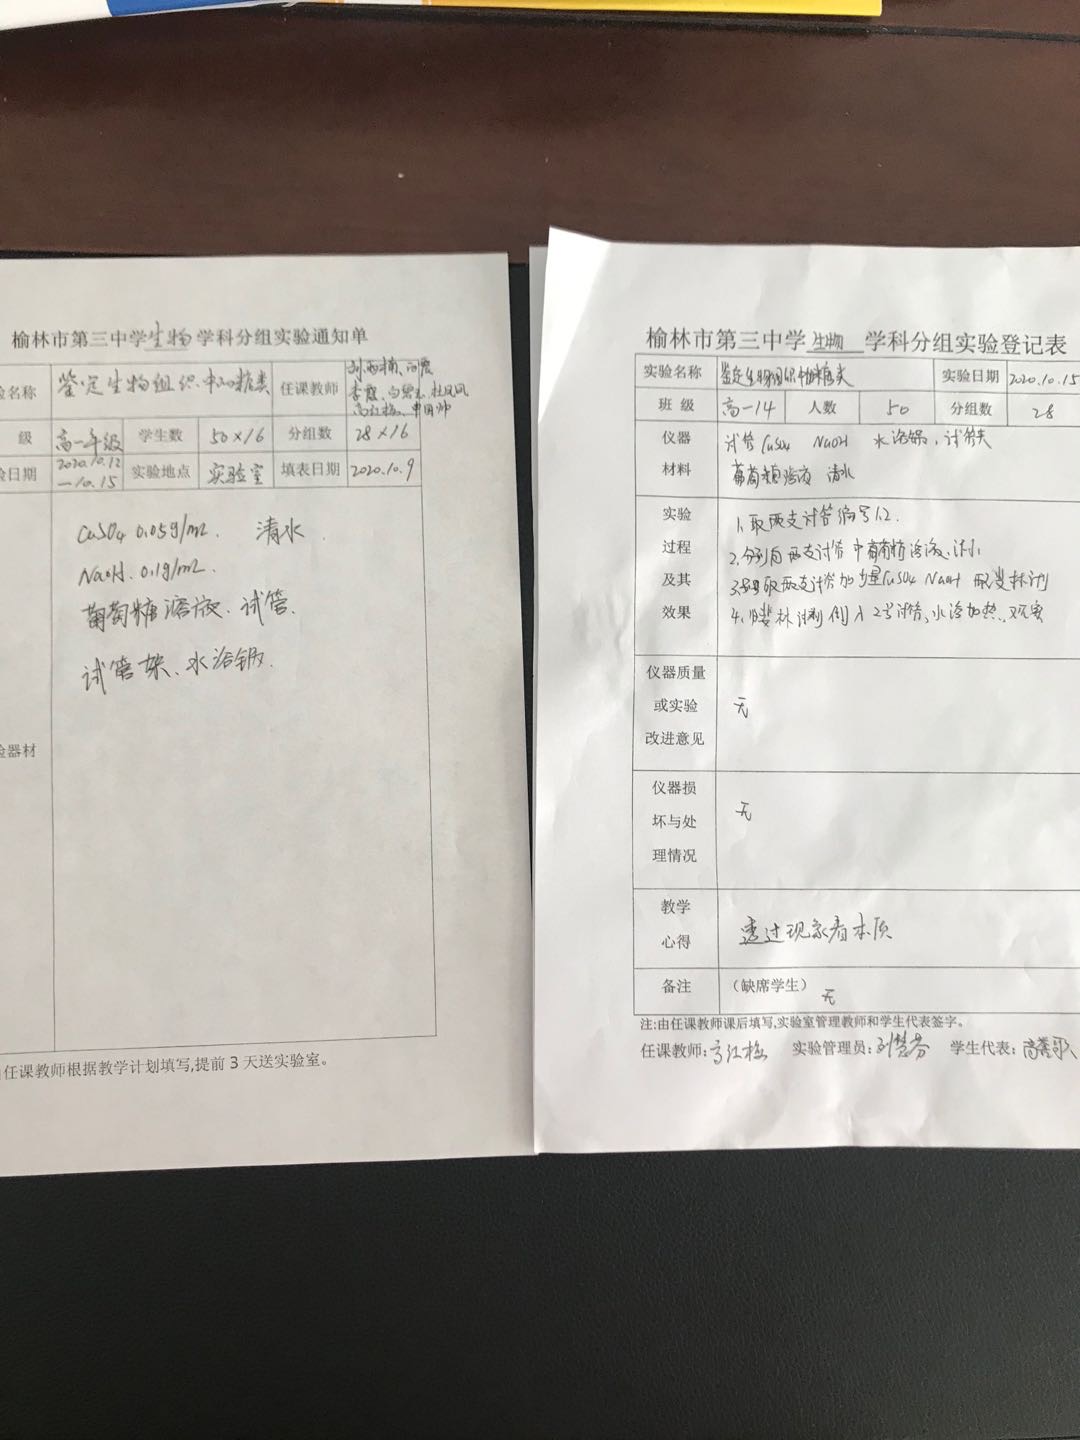 榆林市第三中学生物学科分组实验通知单
验名称 鉴定生物组织中的糖类 任课教师
李霞 杜凤凤
高红梅
级 高一年级 学生数 50×16 分组数 28×16
验日期 2020.10.12 —10.15 实验地点 实验室 填表日期 2020.10.9
验器材
CuSO4 0.05g/mL. 清水.
NaOH. 0.1g/mL.
葡萄糖溶液. 试管.
试管架、水浴锅.
任课教师根据教学计划填写,提前 3 天送实验室。
榆林市第三中学 生物 学科分组实验登记表
实验名称 鉴定生物组织中的糖类 实验日期 2020.10.15
班 级 高一14 人数 50 分组数 28
仪器 材料
试管 CuSO4 NaOH 水浴锅、试管夹
葡萄糖溶液 清水
实验 过程 及其 效果
1.取两支试管编号1、2.
2.分别向两支试管中葡萄糖溶液、
3. 取两支试管加少量CuSO4 NaOH 配斐林试剂
4.将斐林试剂倒入2号试管、水浴加热、观察
仪器质量 或实验 改进意见
无
仪器损 坏与处 理情况
无
教学 心得
透过现象看本质
备注 (缺席学生) 无
注:由任课教师课后填写,实验室管理教师和学生代表签字。
任课教师:高红梅 实验管理员:刘慧芬 学生代表: